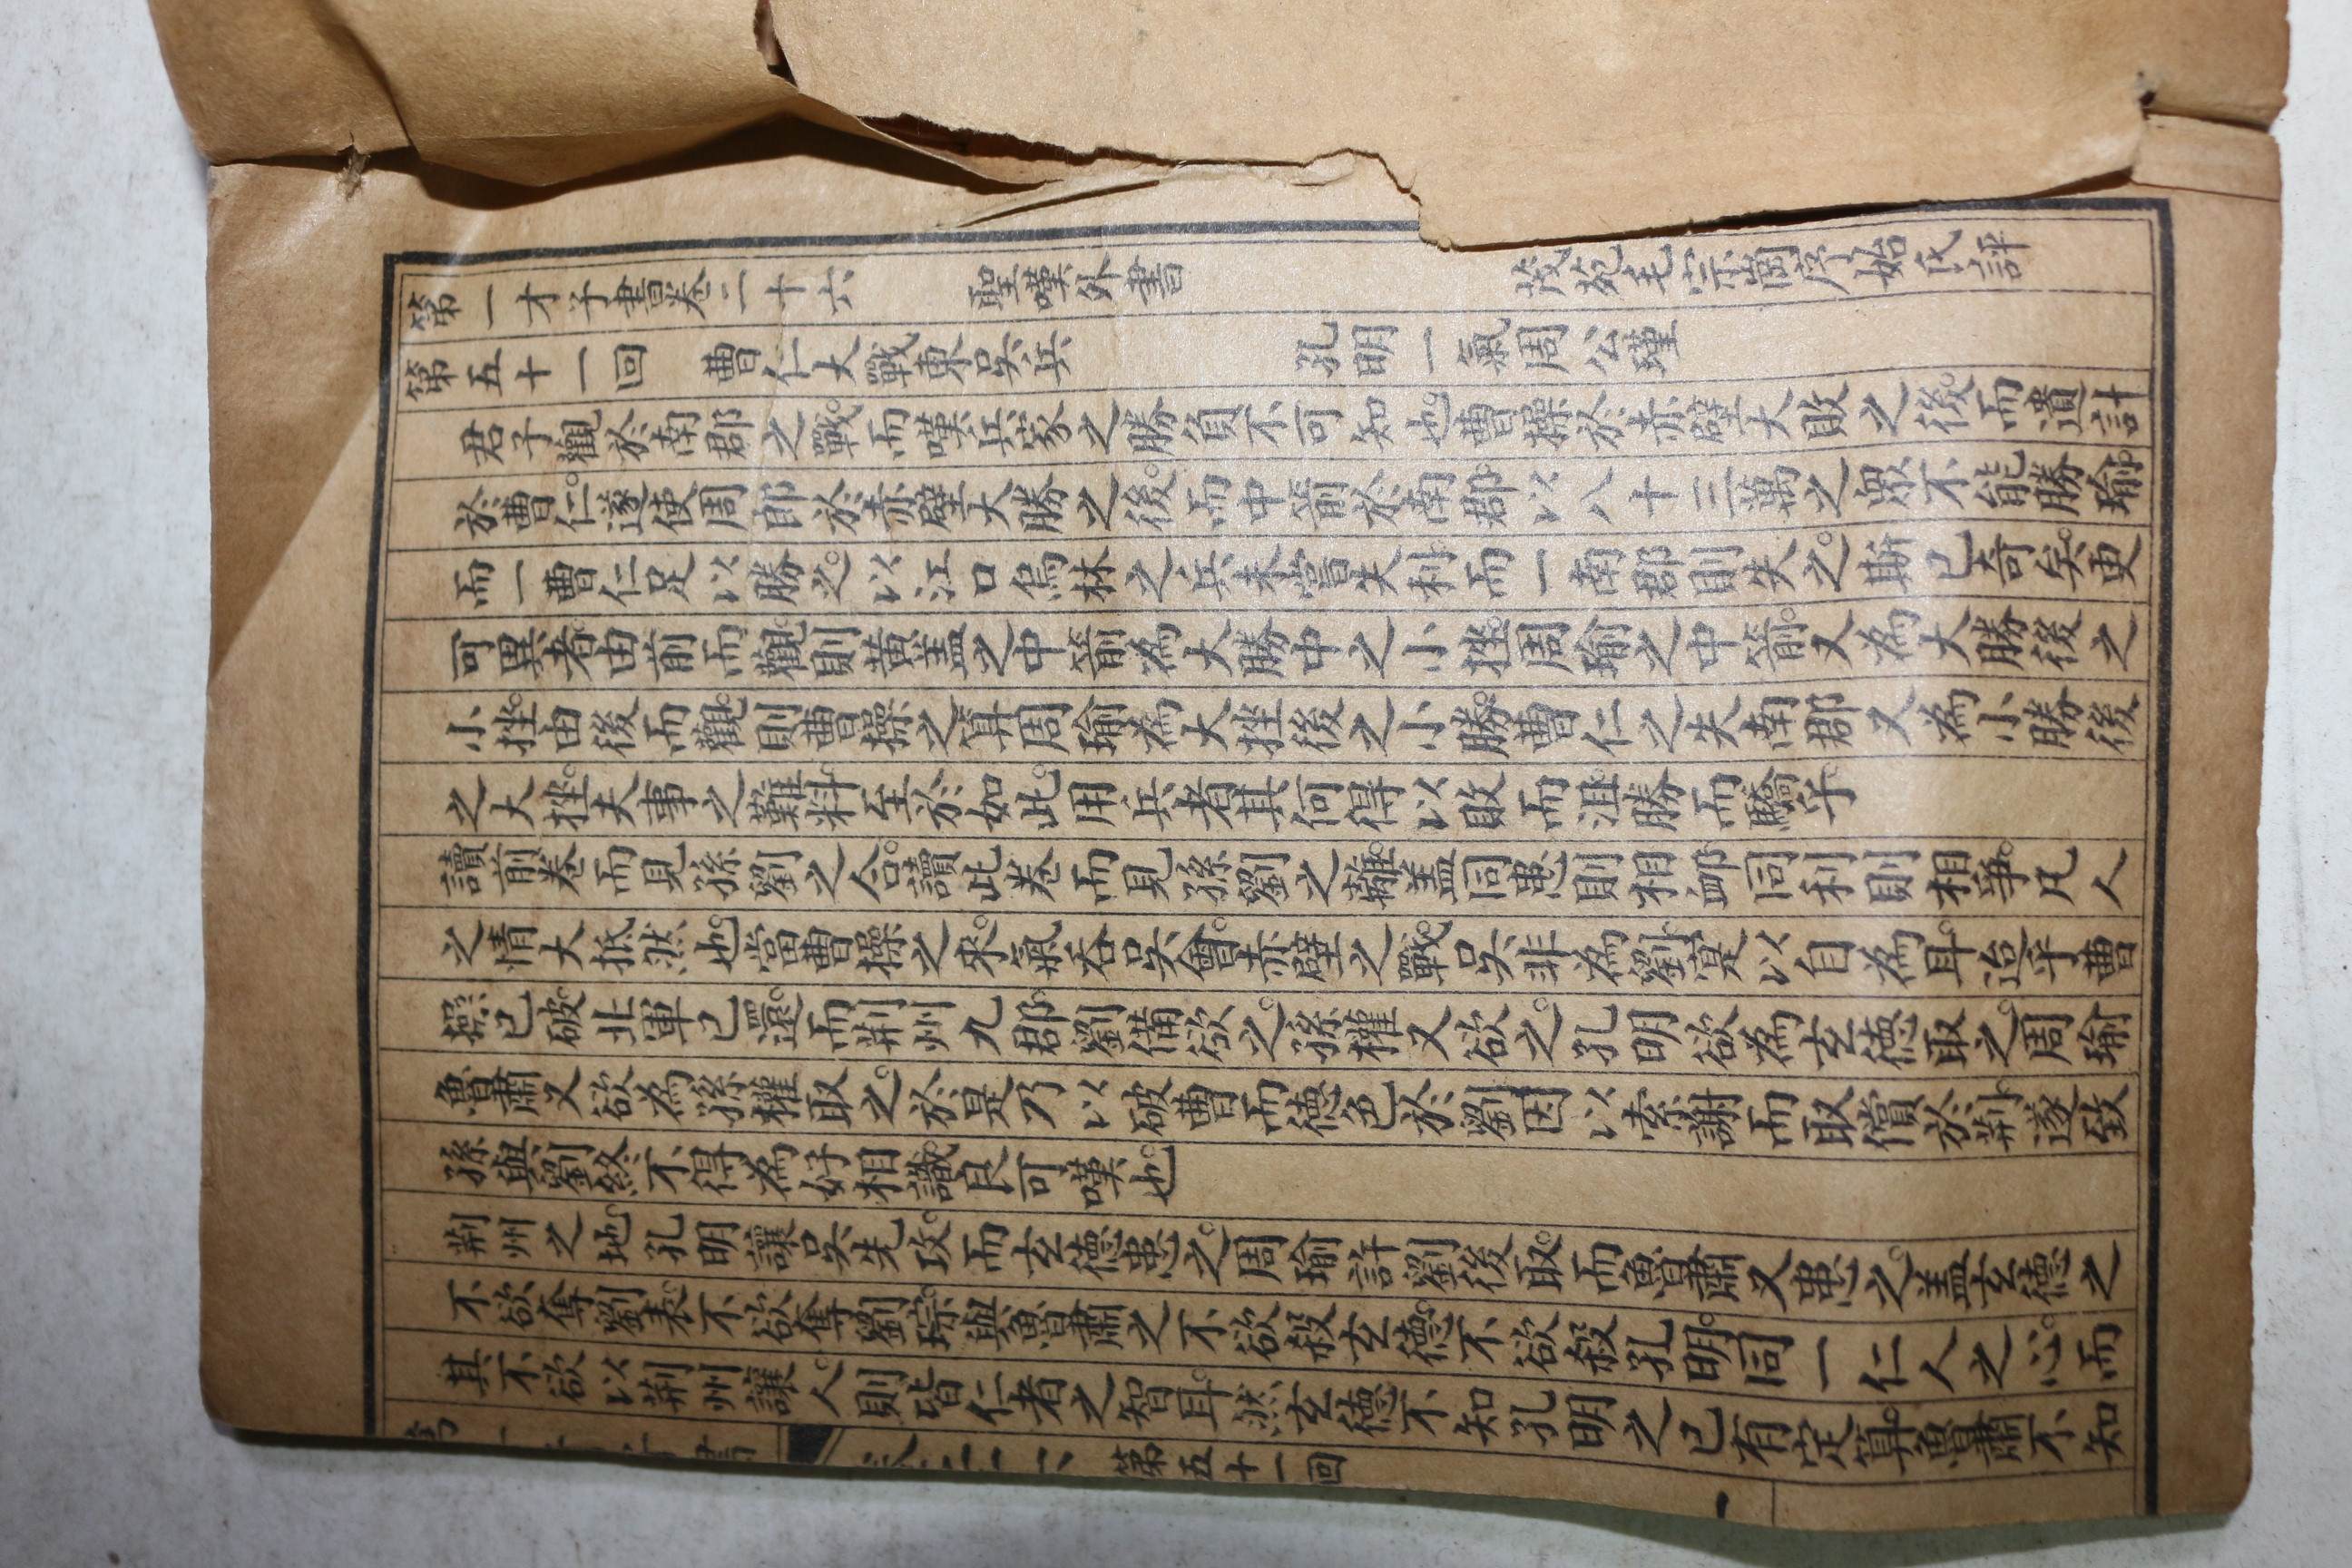 第一才子書卷二十六 聖嘆外書 茂苑毛宗崗序始氏評
第五十一回 曹仁大戰東吳兵 孔明一氣周公瑾
君子觀於南郡之戰。而嘆兵家之勝負不可知也。曹操於赤壁大敗之後。而遺計
於曹仁。遂使周郎於赤壁大勝之後。而中箭於南郡。以八十三萬之衆不能勝瑜。
而一曹仁足以勝之。以江口烏林之兵未嘗失利。而一南郡則失之。斯已奇矣。更
可異者。由前而觀。則黃蓋之中箭為大勝中之小挫。周瑜之中箭。又為大勝後之
小挫。由後而觀。則曹操之算周瑜為大挫後之小勝。曹仁之失南郡又為小勝後
之大挫。夫事之難料。至於如此。用兵者其何得以敗而沮。勝而驕乎。
讀前卷而見孫劉之合。讀此卷而見孫劉之離。盖同患則相䘏同利則相爭。凡人
之情大抵然也。當曹操之來。氣吞吳會。赤壁之戰。吳非為劉。寔以自為耳。迨乎曹
操已破。北軍已還。而荆州九郡。劉備欲之。孫權又欲之。孔明欲為玄德取之。周瑜
魯肅又欲為孫權取之。於是乃以破曹而德色於劉因以索謝而取償於荆。遂致
孫與劉終不得為好相識。良可嘆也。
荆州之地。孔明讓吳先攻。而玄德患之。周瑜許劉後取。而魯肅又患之。盖玄德之
不欲奪劉表。不欲奪劉琮。與魯肅之不欲殺玄德。不欲殺孔明。同一仁人之心。而
其不欲以荆州讓人。則皆仁者之智耳。然玄德不知孔明之已有定算。魯肅不知
第五十一回
一